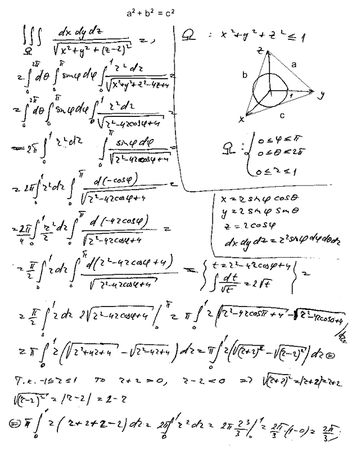 a² + b² = c²
∭_Ω dx dy dz / √(x²+y²+(z-2)²) =
Ω : x²+y²+z² ≤ 1
= ∫₀^2π dθ ∫₀^π sinφ dφ ∫₀¹ r² dr / √(x²+y²+z²-4z+4) =
z
a
b
y
x
c
1
= ∫₀^2π dθ ∫₀^π sinφ dφ ∫₀¹ r² dr / √(r²-4r cosφ+4) =
= 2π ∫₀¹ r² dr ∫₀^π sinφ dφ / √(r²-4r cosφ+4) =
Ω : { 0 ≤ φ ≤ π
0 ≤ θ ≤ 2π
0 ≤ r ≤ 1
= 2π ∫₀¹ r² dr ∫₀^π d(-cosφ) / √(r²-4r cosφ+4) =
x = r sinφ cosθ
y = r sinφ sinθ
z = r cosφ
dx dy dz = r² sinφ dφ dθ dr
= 2π/4 ∫₀¹ r²/r dr ∫₀^π d(-4r cosφ) / √(r²-4r cosφ+4) =
= π/2 ∫₀¹ r dr ∫₀^π d(r²-4r cosφ+4) / √(r²-4r cosφ+4) = { t = r²-4r cosφ+4
∫ dt/√t = 2√t } =
= π/2 ∫₀¹ r dr 2√(r²-4r cosφ+4) |₀^π = π ∫₀¹ r (√(r²-4r cosπ+4) - √(r²-4r cos0+4)) dr
= π ∫₀¹ r (√(r²+4r+4) - √(r²-4r+4)) dr = π ∫₀¹ r (√(r+2)² - √(r-2)²) dr ⊜
Т.к. 0≤r≤1 то r+2 > 0, r-2 < 0 ⇒ √(r+2)² = |r+2| = r+2
√(r-2)² = |r-2| = 2-r
⊜ π ∫₀¹ r (r+2+r-2) dr = 2π ∫₀¹ r² dr = 2π r³/3 |₀¹ = 2π/3 (1-0) = 2π/3